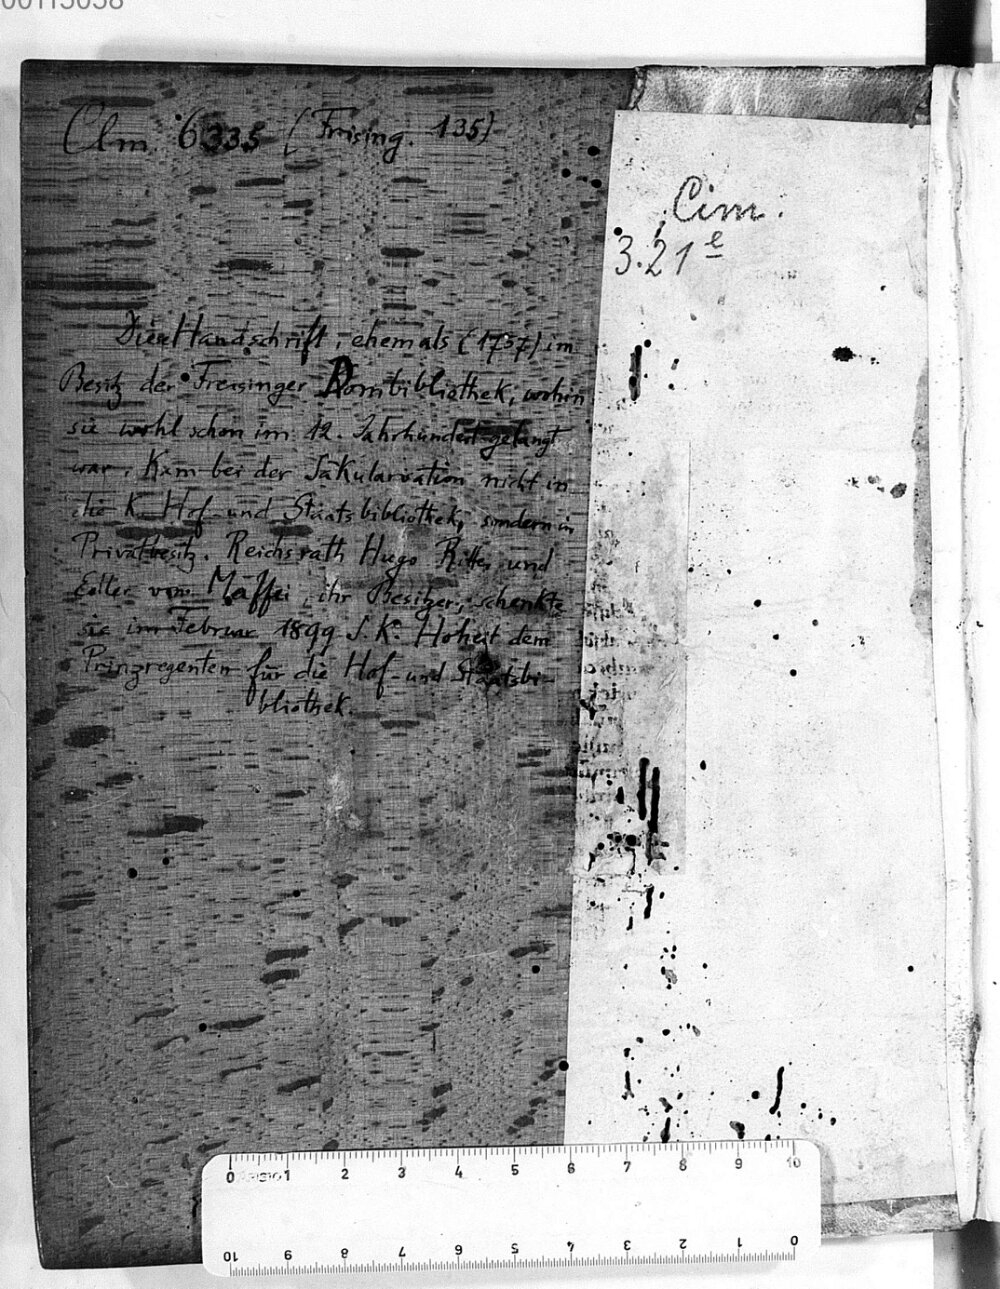 00113038
Clm 6335 (Frising. 135)
Cim.
3.21 e
Diese Handschrift, ehemals (1737) im
Besitz der Freisinger Dombibliothek, wohin
sie wohl schon im 12. Jahrhundert gelangt
war, kam bei der Säkularisation nicht in
die K. Hof- und Staatsbibliothek, sondern in
Privatbesitz. Reichsrath Hugo Ritter und
Edler von Maffei, ihr Besitzer, schenkte
sie im Februar 1899 S. K. Hoheit dem
Prinzregenten für die Hof- und Staatsbi-
bliothek.
0 1 2 3 4 5 6 7 8 9 10
10 9 8 7 6 5 4 3 2 1 0